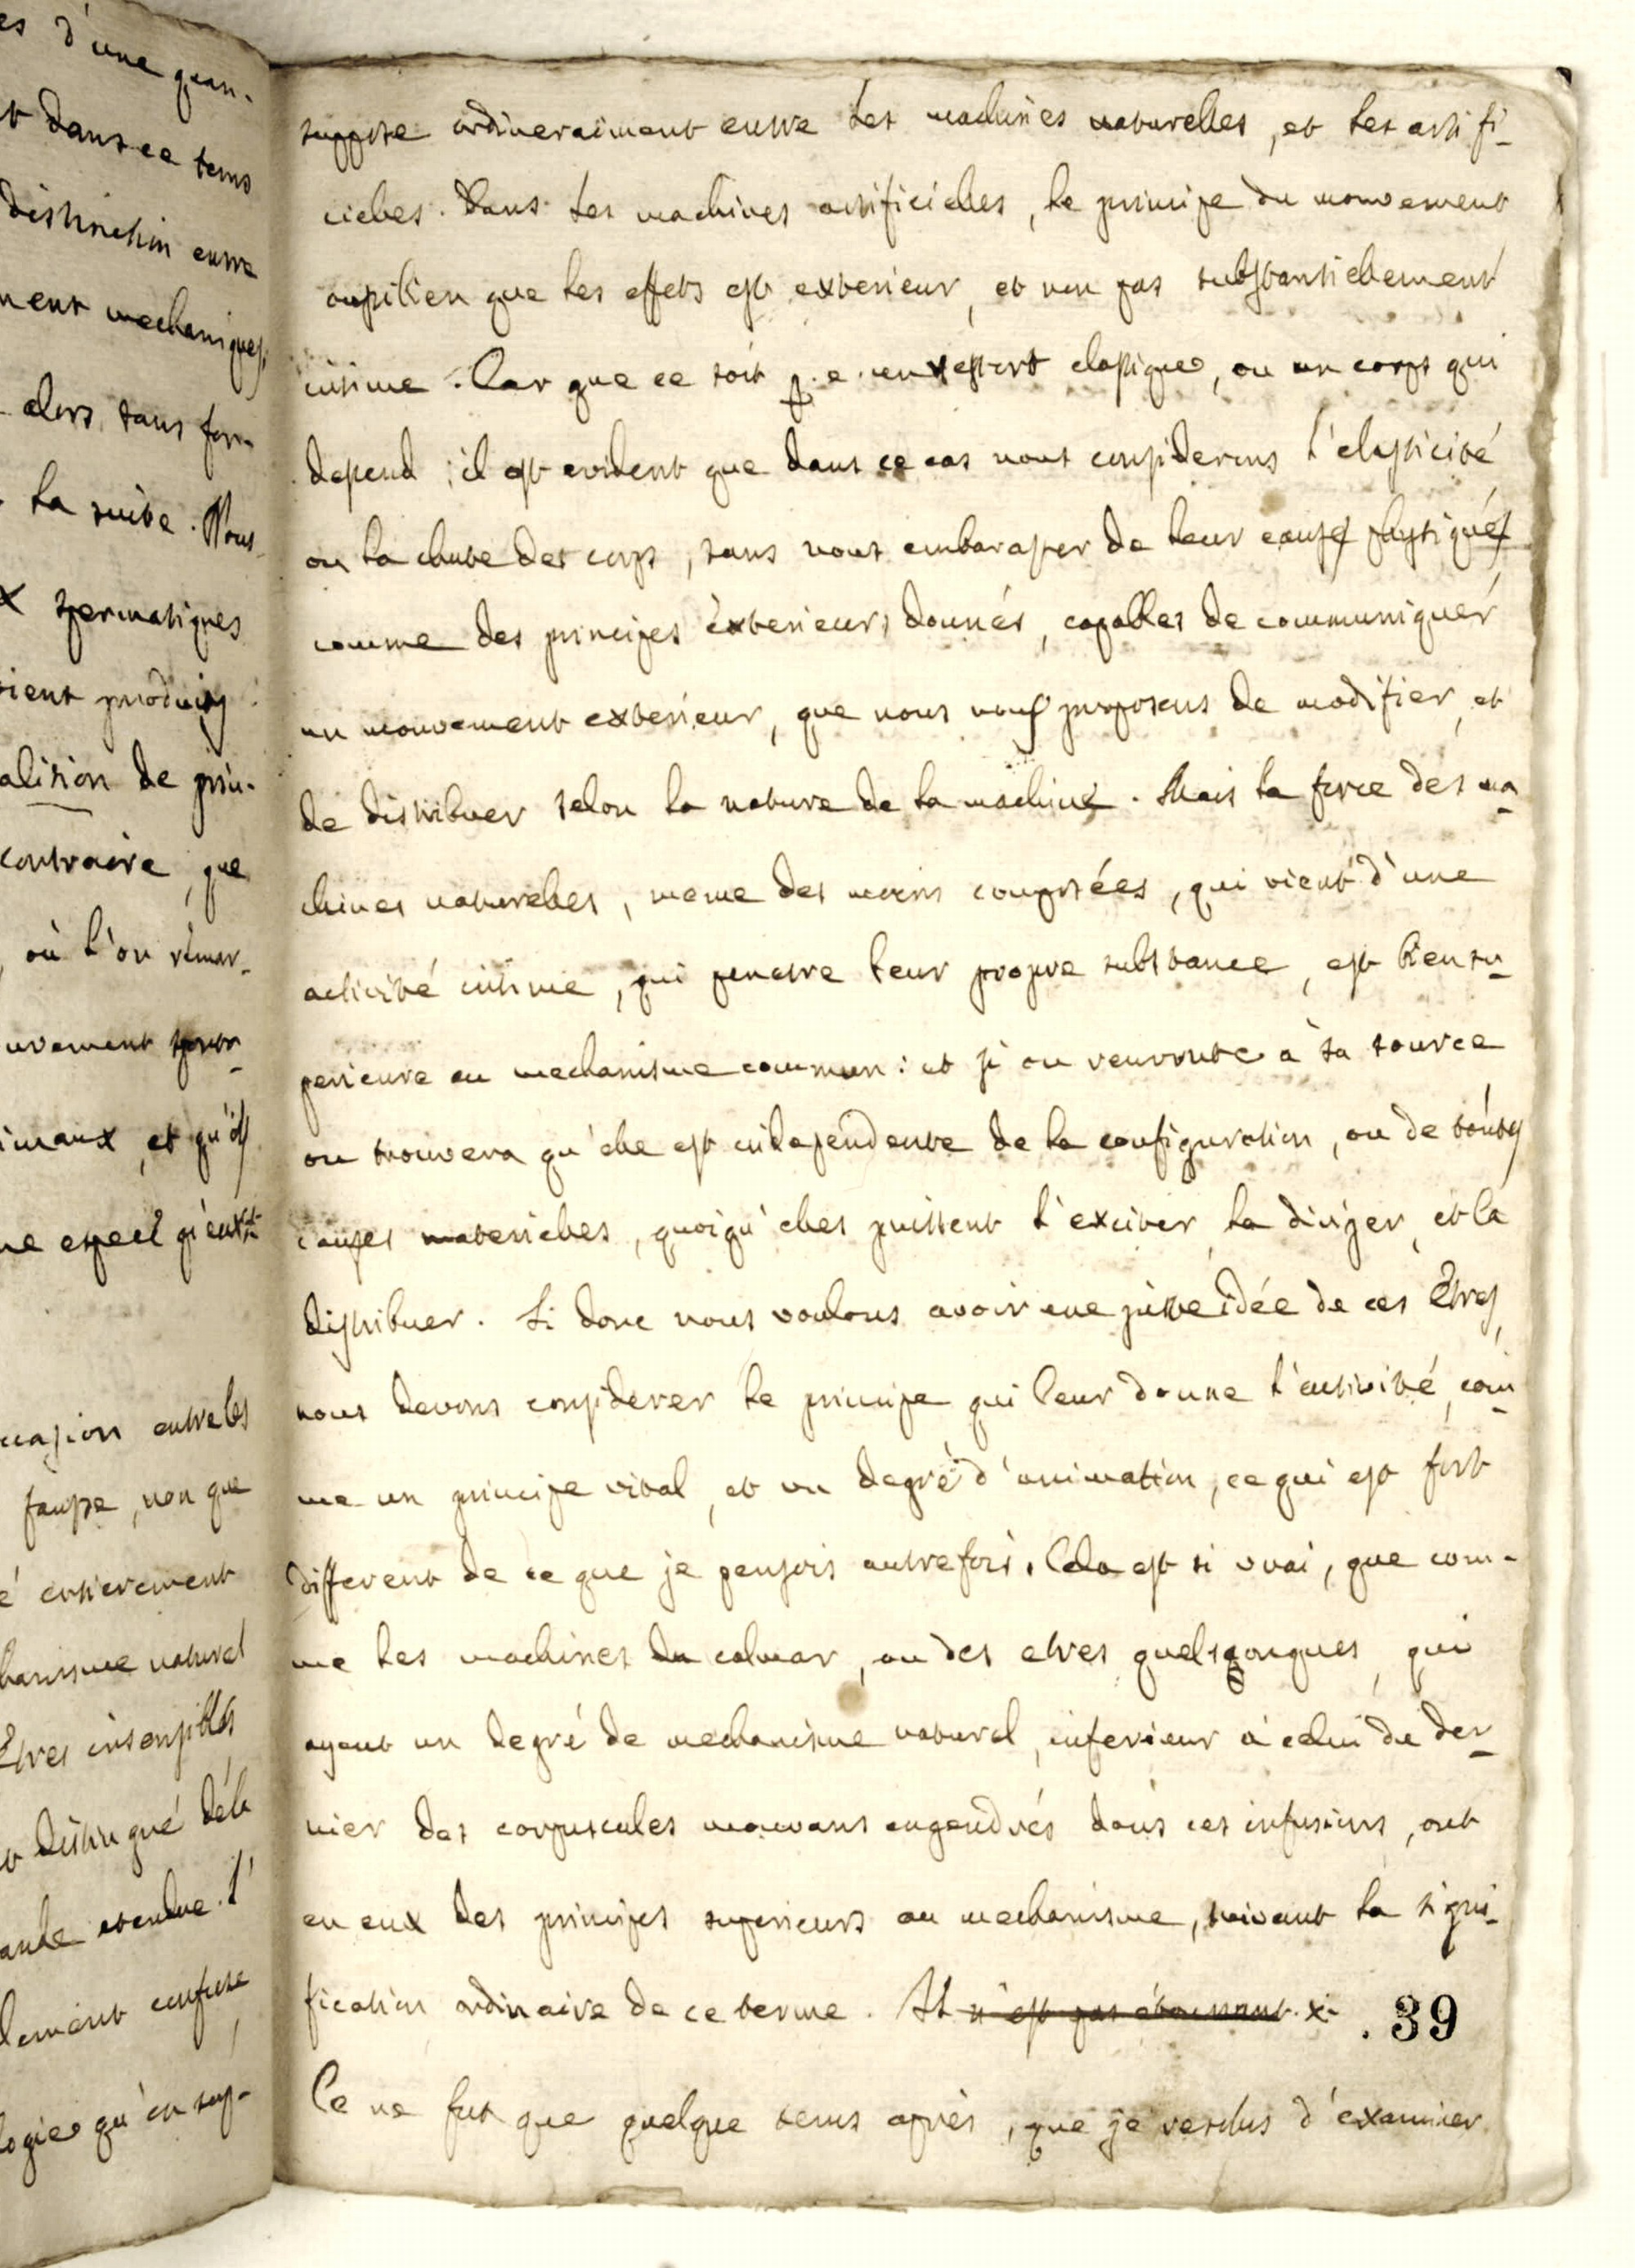 es d'une quan-
t dans ce tems
distinction entre
ment mechaniques,
alors, sans for-
la suite. Nous
x spermatiques
produits
alition de prin-
contraire, que
, où l'on rémar-
uvement
imaux, et qu'ils
ne espece
ccasion entre les
fausse, non que
é entierement
hanisme naturel
Etres insensibles
distingué déla
etendue. l'
lement confuse,
logie qu'on sup-
suppose ordineraiment entre les machines naturelles, et les artifi-
cielles. Dans les machines artificielles, le principe du mouvement
aussibien que les effets est exterieur, et non pas substantiellement
intime. Car que ce soit p. e. un ressort elastique, ou un corps qui
depend; il est evident que dans ce cas nous considerons l'elasticité
ou la chute des corps, sans nous embarasser de leur causes physiqués
comme des principes èxterieurs donnés, capables de communiquér
un mouvement exterieur, que nous nous proposons de modifier, et
de distribuer selon la nature de la machine. Mais la force des ma-
chines naturelles, meme des moins composées, qui vient d'une
activité intime, qui penetre leur propre substance, est bien su-
perieure au mechanisme commun: et si on remonte à sa source
on trouvera qu'elle est independente de la configuration, ou de toutes
causes materielles, quoiqu'elles puissent l'exciter, la diriger, et la
distribuer. Si donc nous voulons avoir une juste idée de ces Etres,
nous devons considerer le principe qui leur donne l'activité, com-
me un principe vital, et un degré d'animation, ce qui est fort
different de ce que je pensois autrefois. Cela est si vrai, que com-
me les machines du calmar, ou des etres quelsqonques, qui
ayent un degré de mechanisme naturel, inferieur à celui du der-
nier des corpuscules mouvans engendrés dans ces infusions, ont
en eux des principes superieurs au mechanisme, suivant la signi-
fication ordinaire de ce terme. Il n'est pas étonnant. x . 39
Ce ne fut que quelque tems après, que je resolus d'examiner